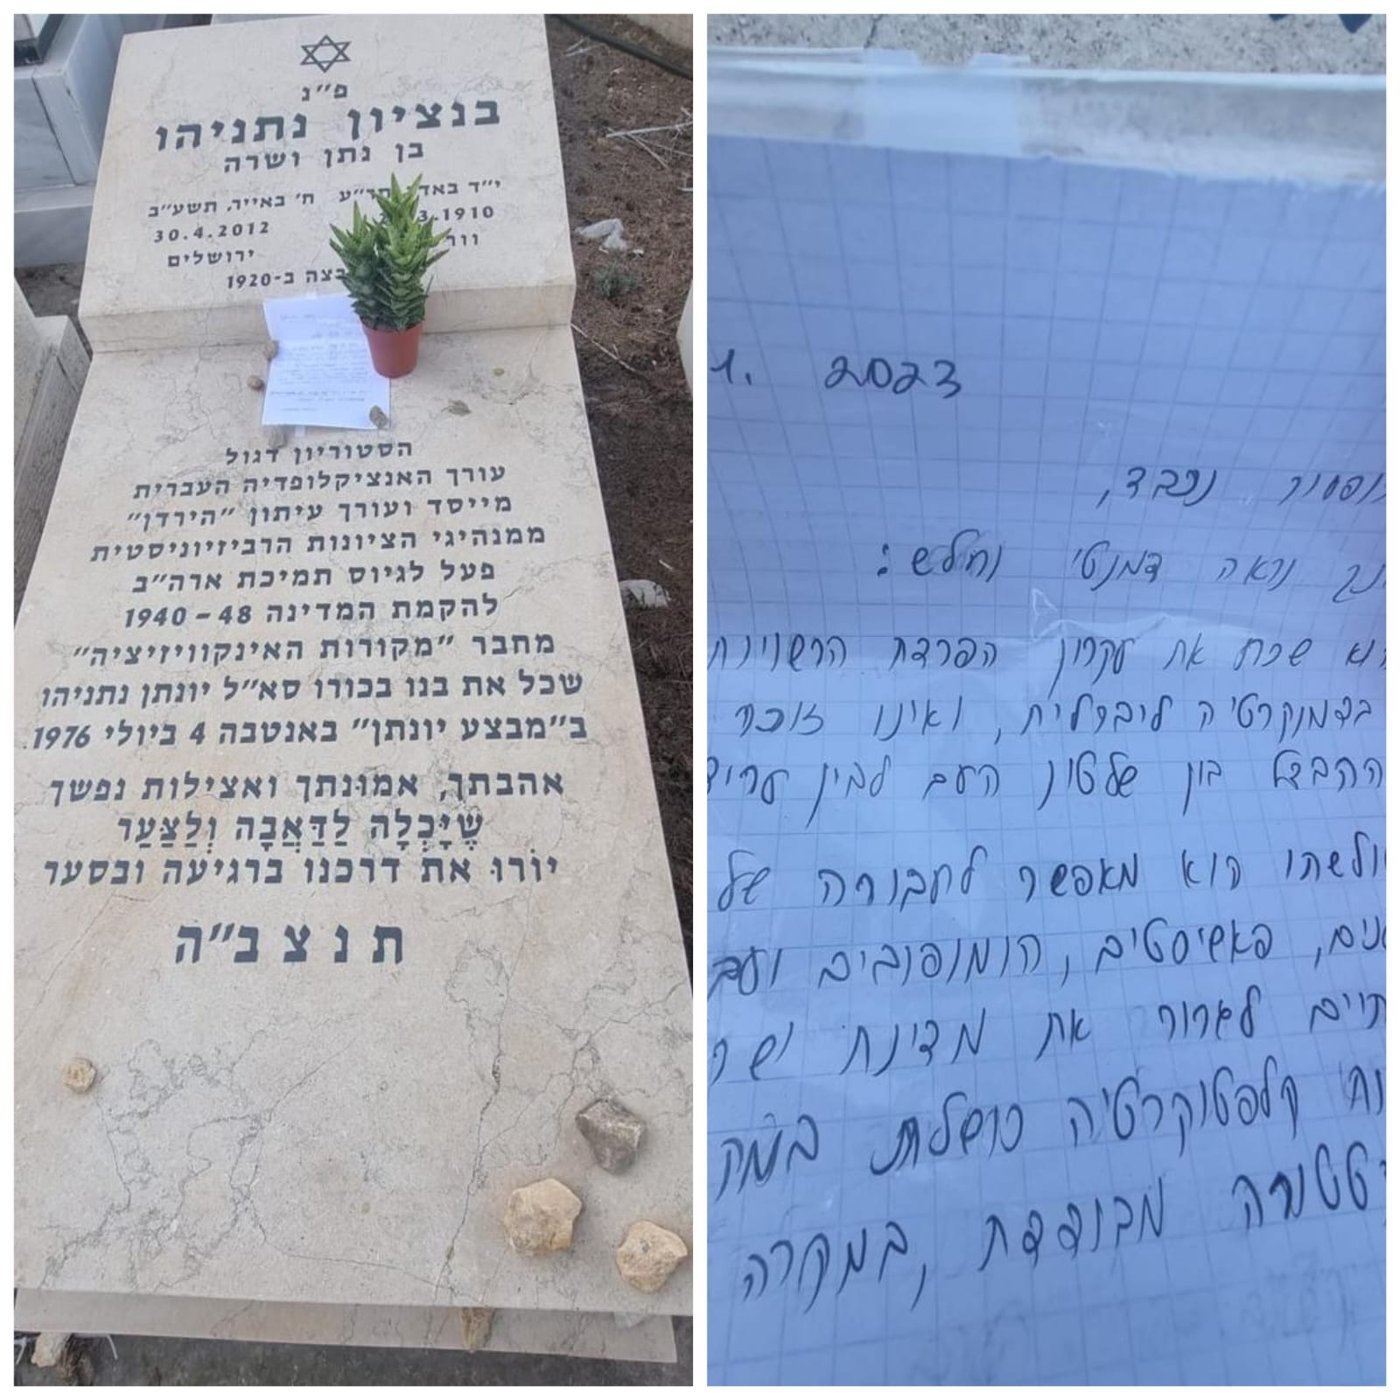 פ״נ
בנציון נתניהו
בן נתן ושרה
י״ד באדר תר״ע ח׳ באייר, תשע״ב
3.1910 30.4.2012
ירושלים
ב-1920
הסטוריון דגול
עורך האנציקלופדיה העברית
מייסד ועורך עיתון ״הירדן״
ממנהיגי הציונות הרביזיוניסטית
פעל לגיוס תמיכת ארה״ב
להקמת המדינה 48 - 1940
מחבר ״מקורות האינקוויזיציה״
שכל את בנו בכורו סא״ל יונתן נתניהו
ב״מבצע יונתן״ באנטבה 4 ביולי 1976
אהבתך, אמונתך ואצילות נפשך
שֶׁיָּכְלָה לַדַּאֲבָה וְלַצַּעַר
יוֹרוּ את דרכנו ברגיעה ובסער
ת נ צ ב״ה
1. 2023
נכבד,
נראה דמנטי וחלש:
שכח את עקרון הפרדת הרשויות
בדמוקרטיה ליברלית, ואינו זוכר
ההבדל בין שלטון העם לבין
הוא מאפשר לחבורה של
פאשיסטים, הומופובים
לגרור את מדינת
קלפטוקרטיה כושלת
מבודדת, במקרה